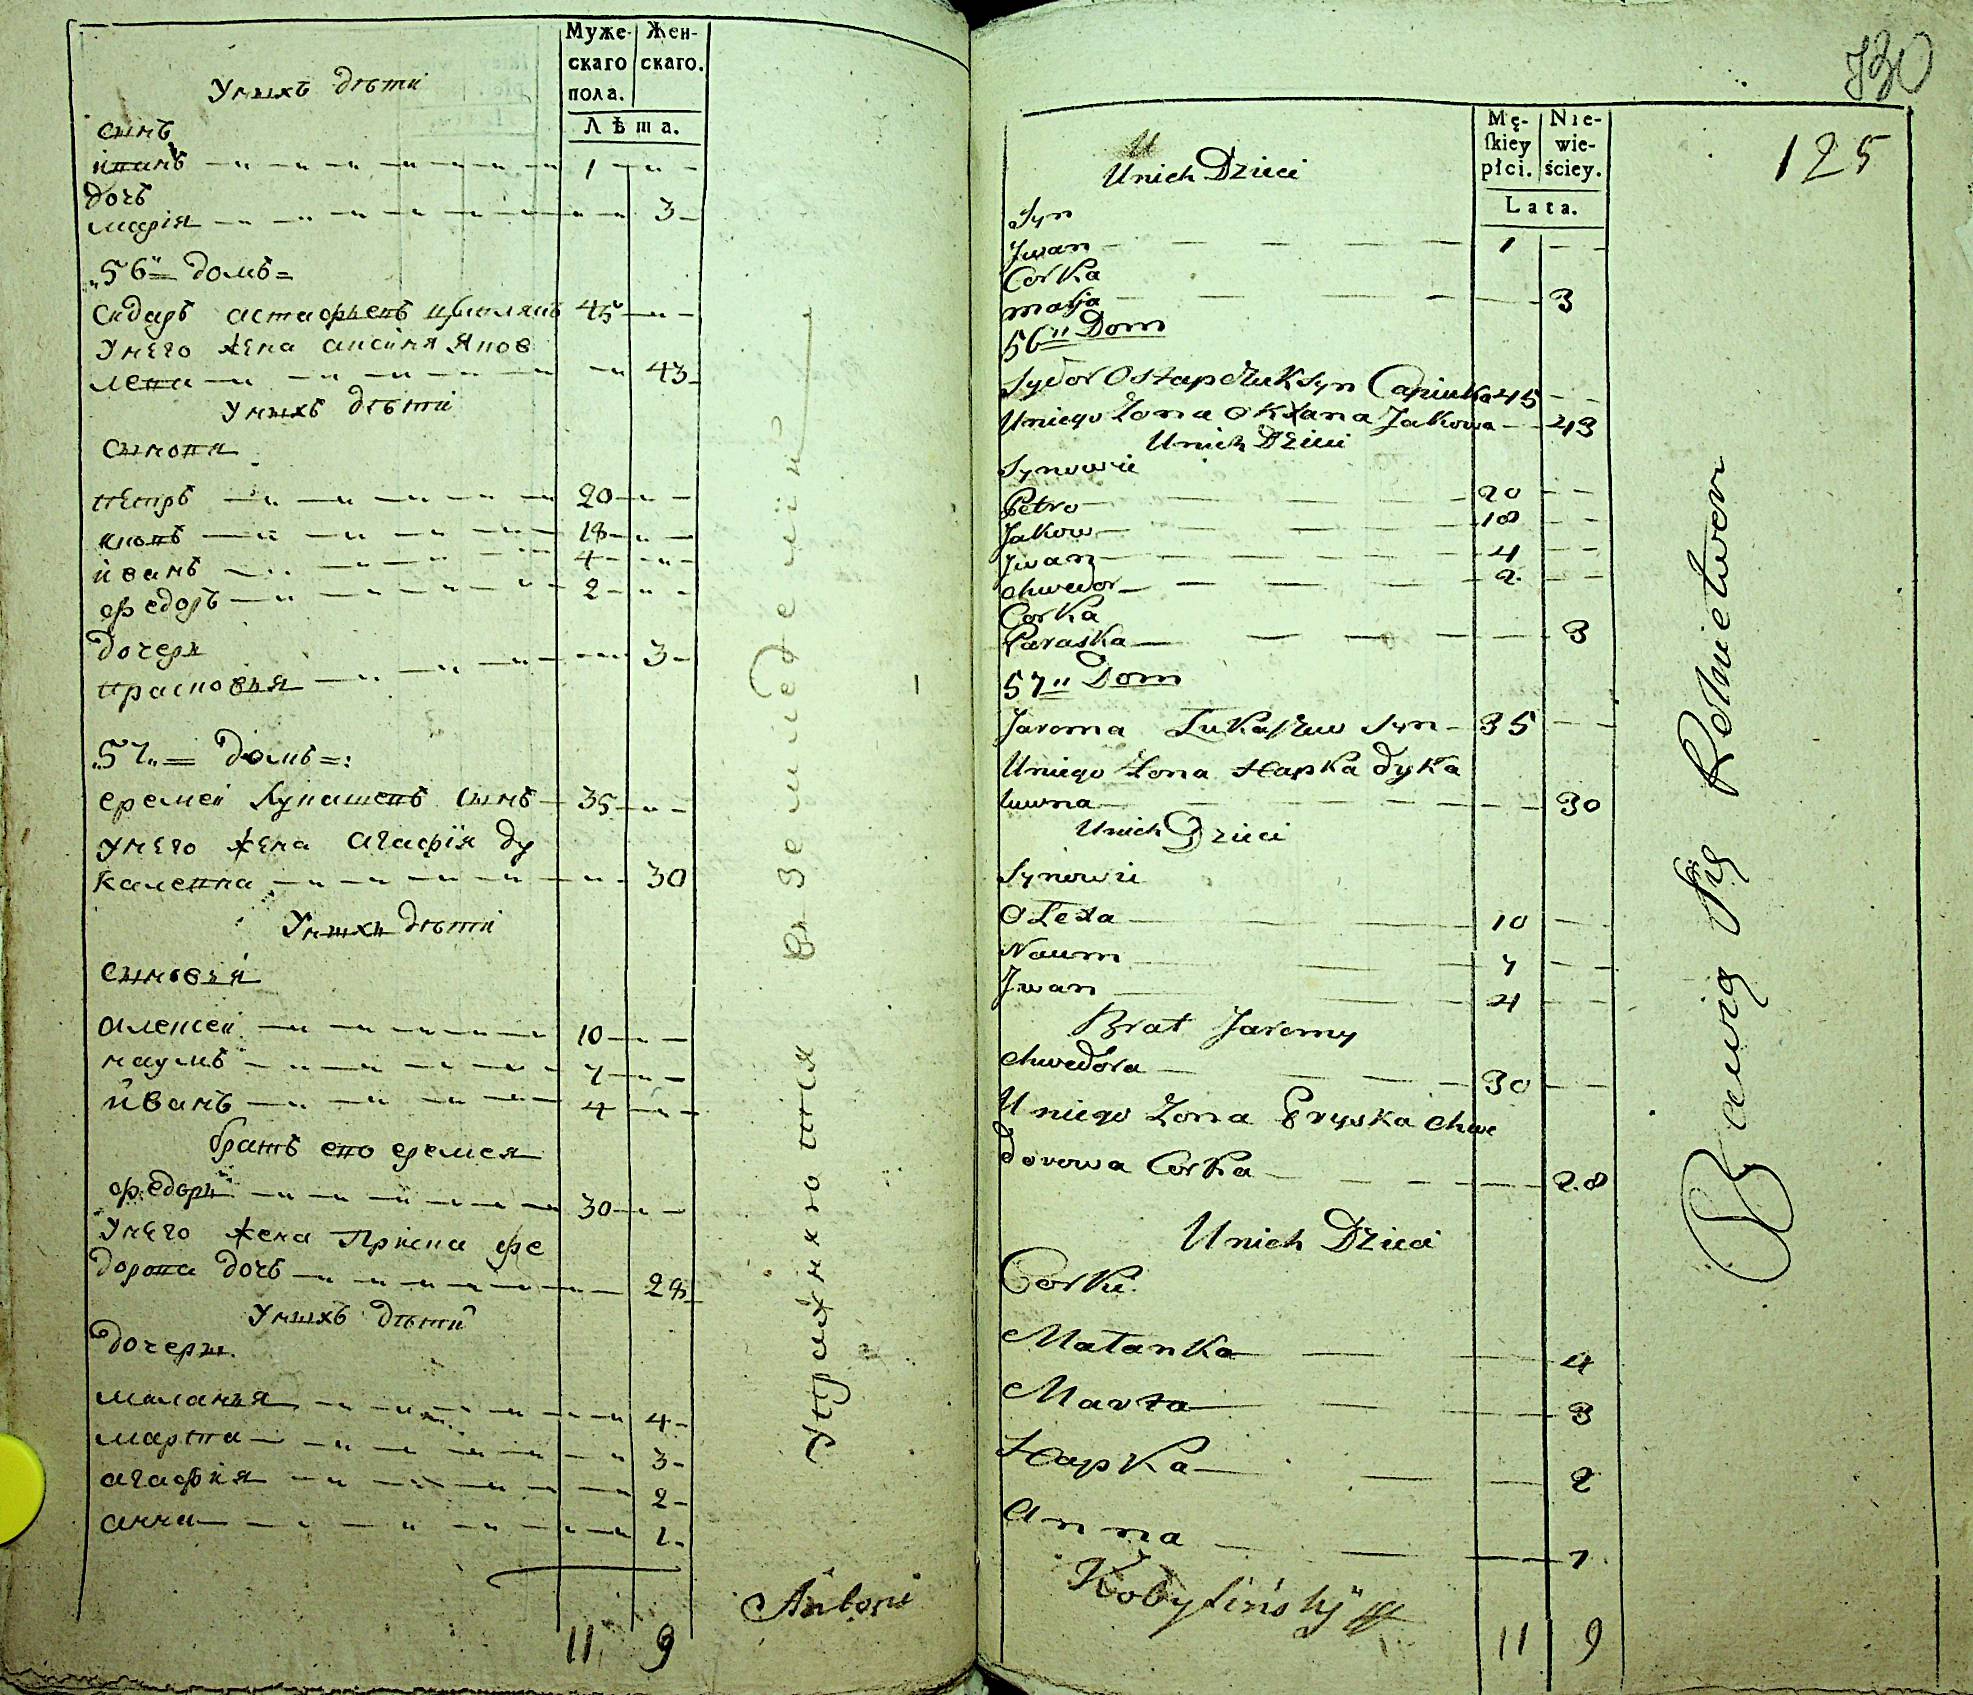 Муже- Жен-
скаго скаго.
пола.
Лѣта.
Унихъ дѣти
сынъ
иванъ 1
дочь
марія 3
56 домъ
Сидаръ астафьевъ 45
Унего жена аксиня Яков
лева 43
Унихъ дѣти
сынови
петръ 20
яковъ 18
иванъ 4
федоръ 2
дочери
прасковья 3
57 домъ
еремей Лукашевъ сынъ 35
унего жена агафія ду
калевна 30
Унихъ дѣти
сыновья
алексей 10
наумъ 7
иванъ 4
братъ ево еремея
федоръ 30
Унего жена Приска фе
дорова дочь 28
Унихъ дѣти
дочери
маланья 4
марта 3
агафия 2
анна 1
11 9
Упражняются в земледелии
Antoni
730
125
Mę- Nie-
skiey wie-
płci. ściey.
Lata.
Unich Dzieci
Syn
Jwan 1
Corka
marja 3
56 Dom
Sydor Ostapczuk Syn Capiuka 45
Uniego Żona Oxana Jakowa 43
Unich Dzieci
Synowie
Petro 20
Jakow 18
Jwan 4
Chwedor 2
Corka
Paraska 3
57 Dom
Jaroma Łukaszuw Syn 35
Uniego Żona Hapka dyka
luwna 30
Unich Dzieci
Synowie
Ołexa 10
Naum 7
Jwan 4
Brat Jaromy
Chwedora 30
Uniego Żona Pryska Chwe
dorowa Corka 28
Unich Dzieci
Corki
Małanka 4
Marta 3
Hapka 2
Anna 1
Kobyliński
11 9
Bawią się Rolnictwem